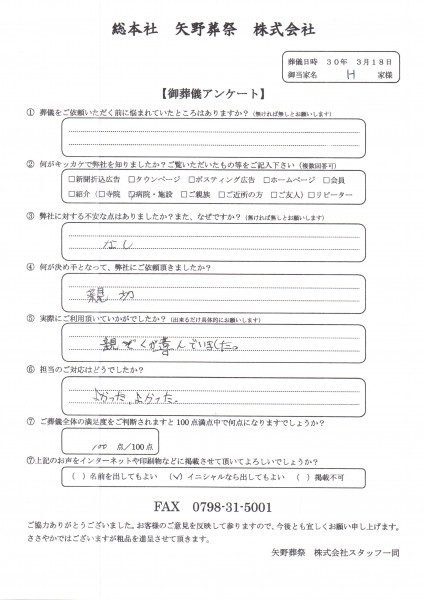 総本社 矢野葬祭 株式会社
葬儀日時 30年 3月18日
御当家名 H 家様
【御葬儀アンケート】
① 葬儀をご依頼いただく前に悩まれていたところはありますか？(無ければ無しとお願いします)
② 何がキッカケで弊社を知りましたか？ご覧いただいたもの等をご記入下さい (複数回答可)
□新聞折込広告 □タウンページ □ポスティング広告 □ホームページ □会員
□紹介（□寺院 ☑病院・施設 □ご親族 □ご近所の方 □ご友人）□リピーター
③ 弊社に対する不安な点はありましたか？また、なぜですか？(無ければ無しとお願いします)
なし
④ 何が決め手となって、弊社にご依頼頂きましたか？
親切
⑤ 実際にご利用頂いていかがでしたか？(出来るだけ具体的にお願いします)
んでいました。
⑥ 担当のご対応はどうでしたか？
よかった、よかった。
⑦ ご葬儀全体の満足度をご判断されますと100点満点中で何点になりますでしょうか？
100 点/100点
⑦上記のお声をインターネットや印刷物などに掲載させて頂いてよろしいでしょうか？
（ ）名前を出してもよい （✓）イニシャルなら出してもよい （ ）掲載不可
FAX 0798-31-5001
ご協力ありがとうございました。お客様のご意見を反映して参りますので、今後とも宜しくお願い申し上げます。
ささやかではございますが粗品を進呈させて頂きます。
矢野葬祭 株式会社スタッフ一同